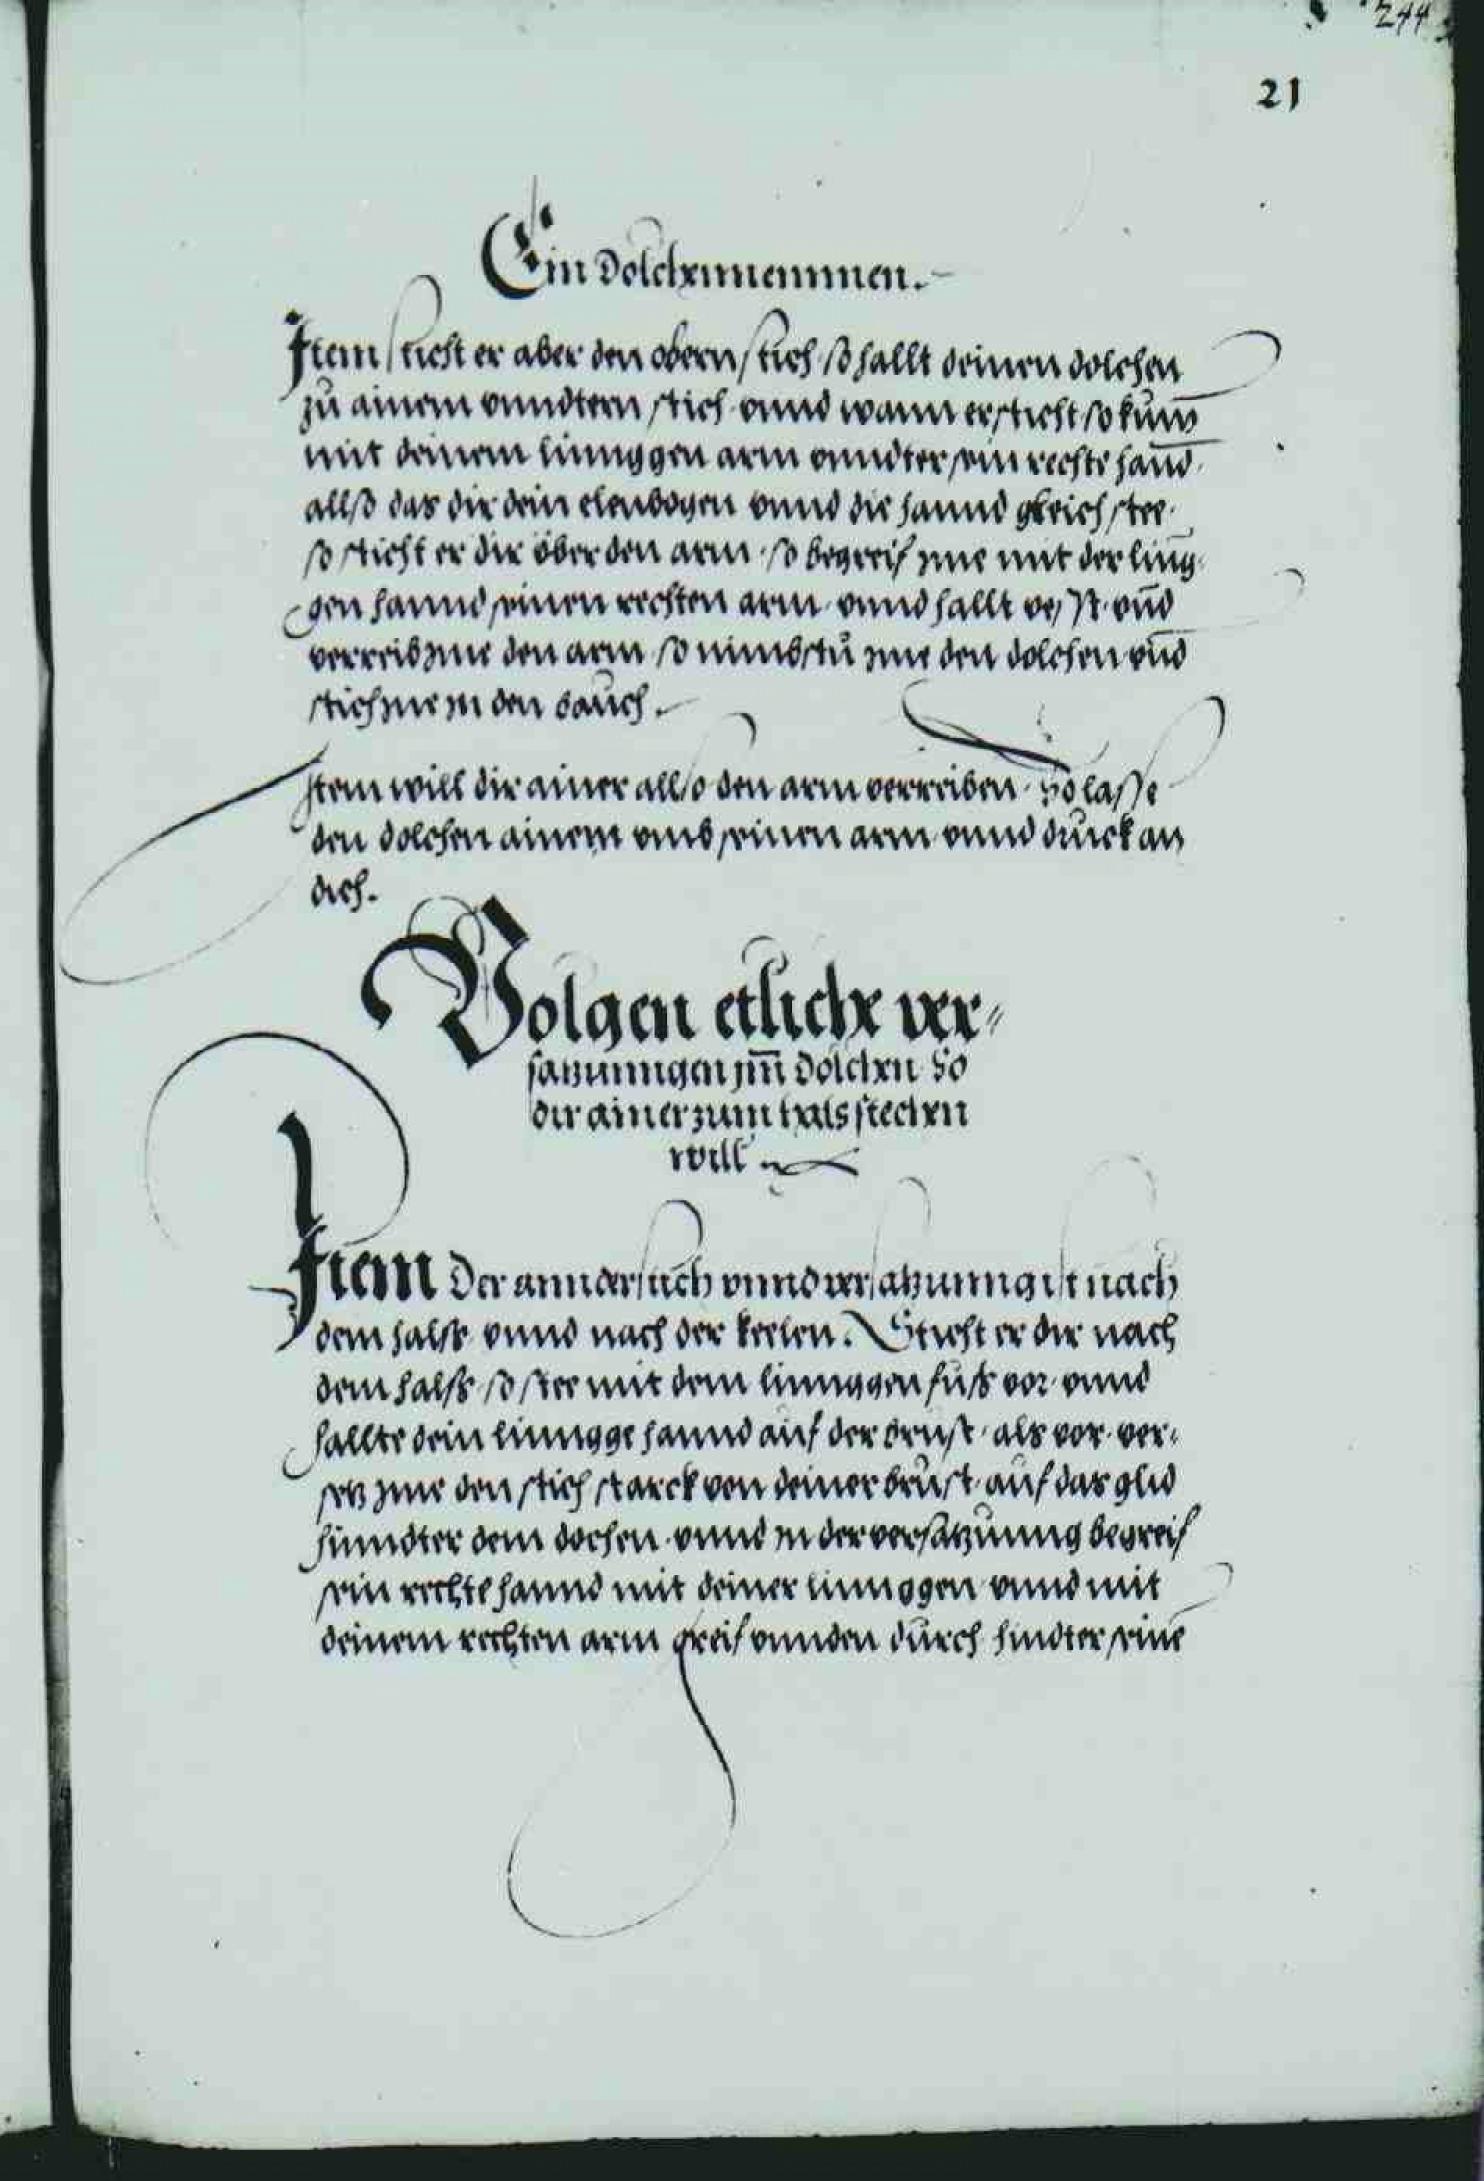 244
21
Ein Dolchennemmen.
Item sticht er aber den obern stich so hallt deinen dolchen
zů ainem vundtern stich vnnd wann er sticht so kum̄
mit deinem linnggen arm vnndter sein rechte hannd
allso das dir dein elenbogen vnnd die hannd gleich stee
so sticht er dir über den arm so begreif jme mit der ling,
gen hannd seinen rechten arm vnnd hallt vesst vn̄d
verreib jme den arm so nimbstu jme den dolchen vn̄d
stich jme in den bauch.
Item will dir ainer allso den arm verreiben So lasse
den dolchen ainem vmb seinen arm vnnd druck an
dich.
Volgen etliche ver=
satzunngen jm̄ Dolchen So
dir ainer zum hals stechen
will
Item Der annder stich vnnd versatzunng ist nach
dem halss vnnd nach der keelen. Sticht er dir nach
dem halss so stee mit dem linnggen fuss vor vnnd
hallte dein linngge hannd auf der brust als vor ver,
setz jme den stich starck von deiner brust auf das glid
hinndter dem dochen vnnd in der versatzunng begreif
sein rechte hannd mit deiner linnggen vnnd mit
deinem rechten arm greif vnnden durch hindter seinē